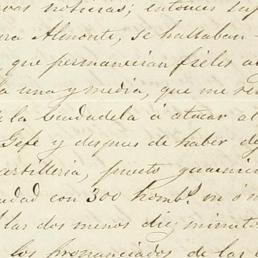 vas noticias; entonces sup
era Almonte, se hallaban
que permanecian fieles al
la una y media, que me ve
a la Ciudadela á atacar al
Gefe y despues de haber de
artilleria, puesto guarnic
udad con 300 homb.s m
las dos menos diez minuto
los pronunciados de las